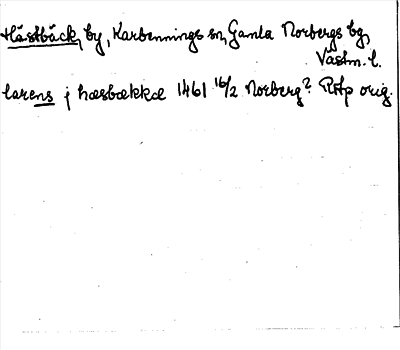 Hästbäck, by, Karbennings sn, Gamla Norbergs bg,
Västm. l.
larens j hæsbækkæ 1461 16/2 Norberg? RAp orig.